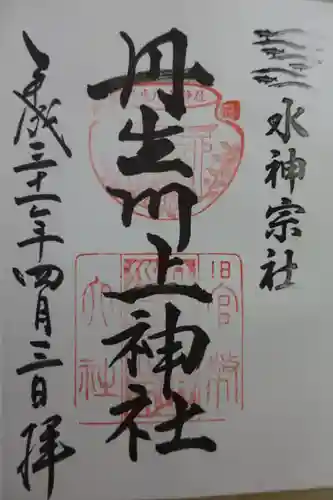 水神宗社
丹生川上神社
平成三十一年四月三日拝
旧官幣
大社